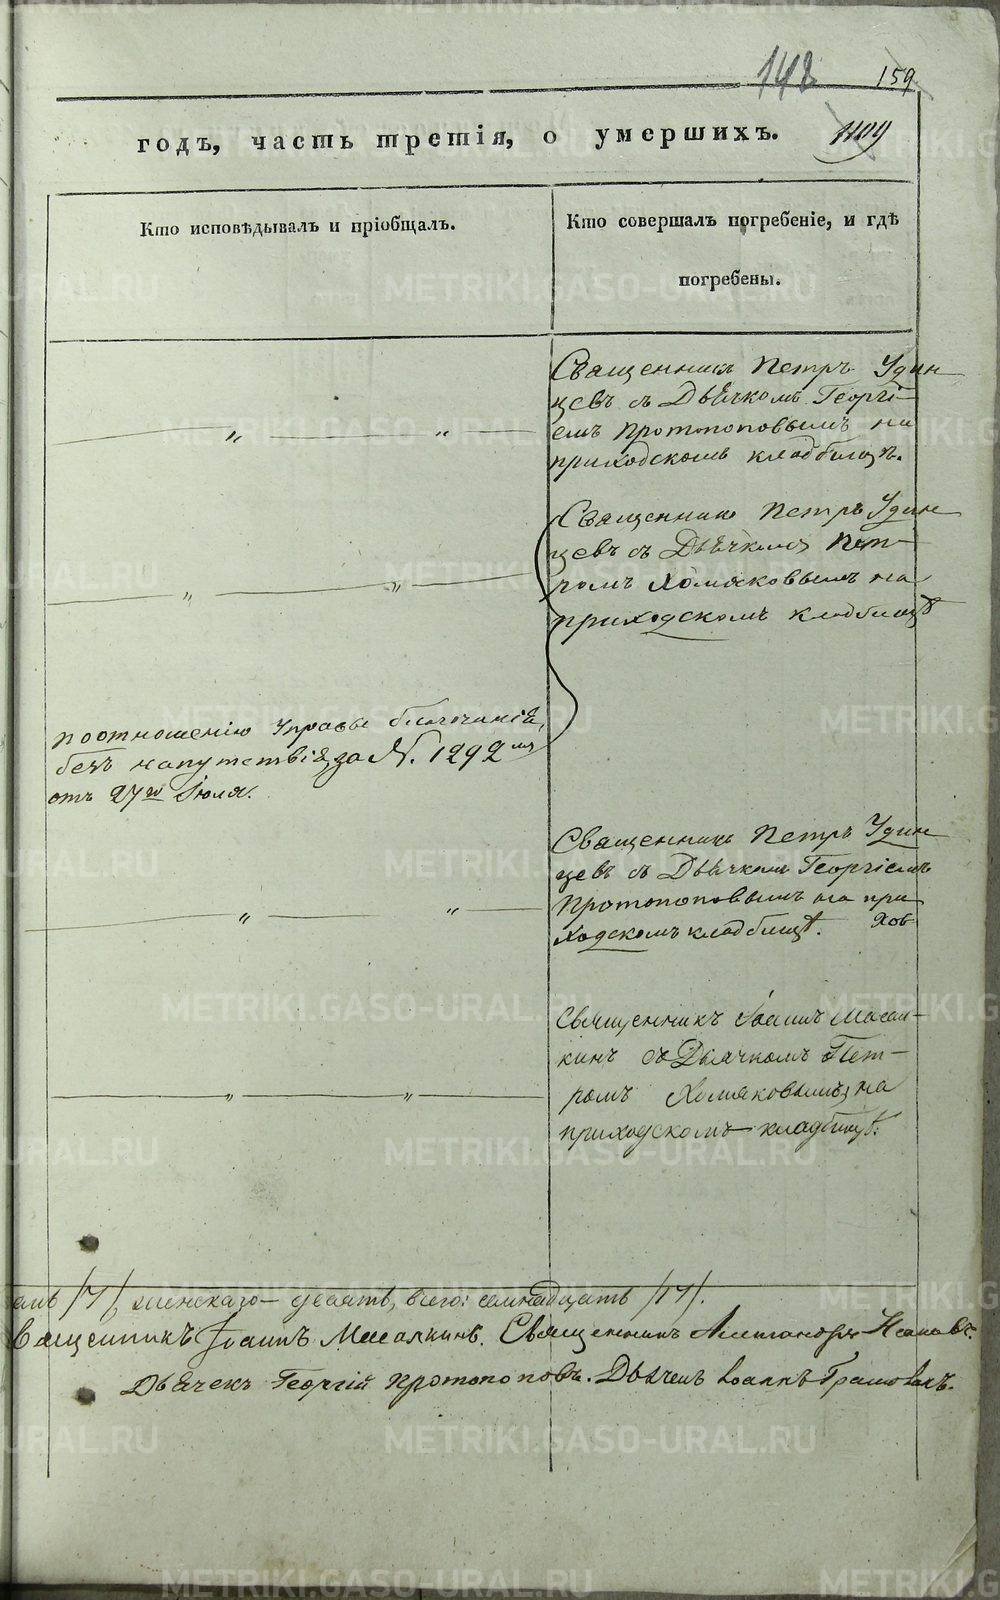 148 159
годъ, часть третія, о умершихъ.
Кто исповѣдывалъ и пріобщалъ.
Кто совершалъ погребеніе, и гдѣ
погребены.
Священникъ Петръ Удин
цевъ съ Дьячкомъ Георгі-
емъ Протопоповымъ на
приходскомъ кладбищѣ.
Священникъ Петръ Удин
цевъ съ Дьячкомъ Пет-
ромъ Хомяковымъ на
приходскомъ кладбищѣ
по отношенію Управы благочинія,
безъ напутствія, за №. 1292 мъ
отъ 27го Іюля.
Священникъ Петръ Удин
цевъ съ Дьячкомъ Георгіемъ
Протопоповымъ на при
ходскомъ кладбищѣ.
Священникъ Іоаннъ Масал-
кинъ съ Дьячкомъ Пет-
ромъ Хомяковымъ, на
приходскомъ кладбищѣ.
женскаго – девять, всего: семнадцать /17/.
Священникъ Іоаннъ Масалкинъ. Священникъ Александръ
Дьячекъ Георгій Протопоповъ. Дьячекъ Іоаннъ
METRIKI.GASO-URAL.RU